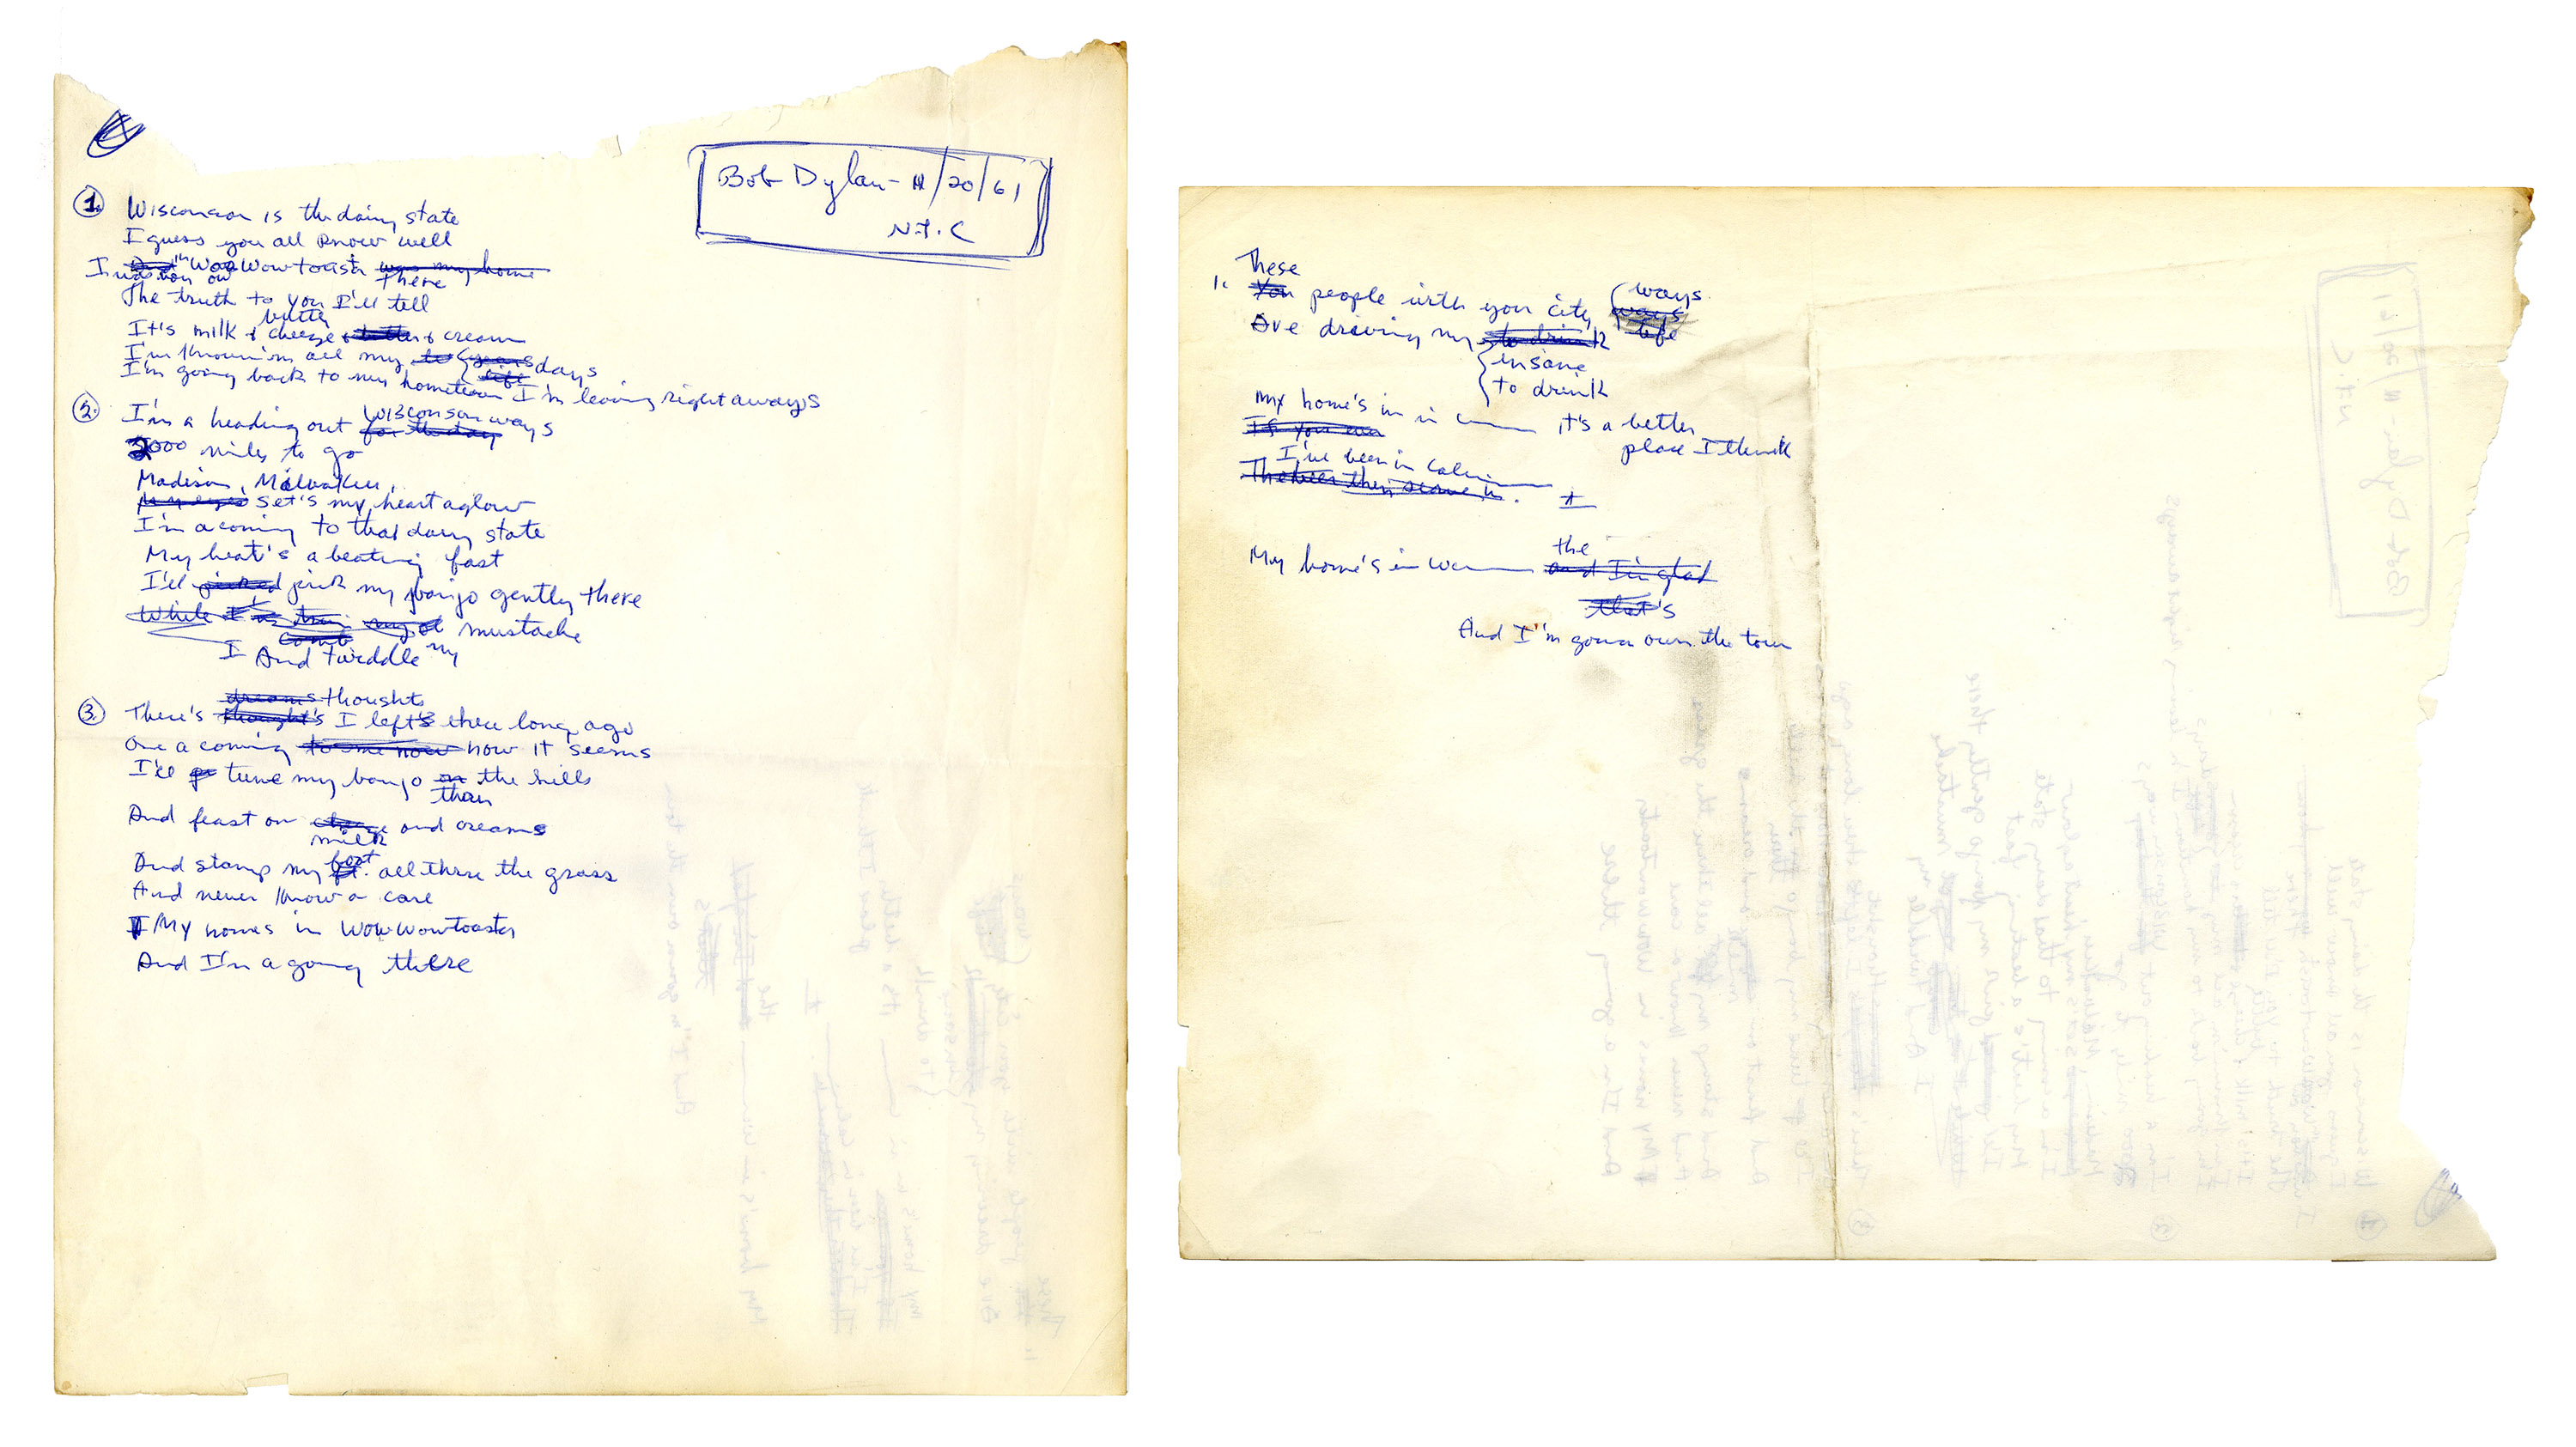 Bob Dylan - 11/20/61
N.Y.C
1. Wisconson is the dairy state
I guess you all know well
I was in Wow Wow toaster was my home
born on There
The truth to you I'll tell
butter
It's milk & cheese & butter & cream
I'm known'm all my years days
life
I'm going back to my hometown I'm leaving right aways
2. I'm a heading out Wisconson ways
for the day
2000 miles to go
Madison, Milwakee,
Set's my heart aglow
I'm a coming to that dairy state
My heat's a beating fast
I'll picked pick my banjo gently there
While I my ol mustache
comb
I And twiddle my
dreams thoughts
3. There's thought's I left there long ago
Are a coming to me now now it seems
I'll tune my banjo on the hills
than
And feast on cheese and creams
milk
foot
And stamp my ft. all thru the grass
And never know a care
I My homes in Wow Wow toaster
And I'm a going there
These
1. You people with your city ways
ways
life
Are driving my to drink
insane
to drink
My home's in in it's a better
If you ever place I think
I've been in Cali
I
the
My home's in W and I'm glad
that's
And I'm gonna own the town